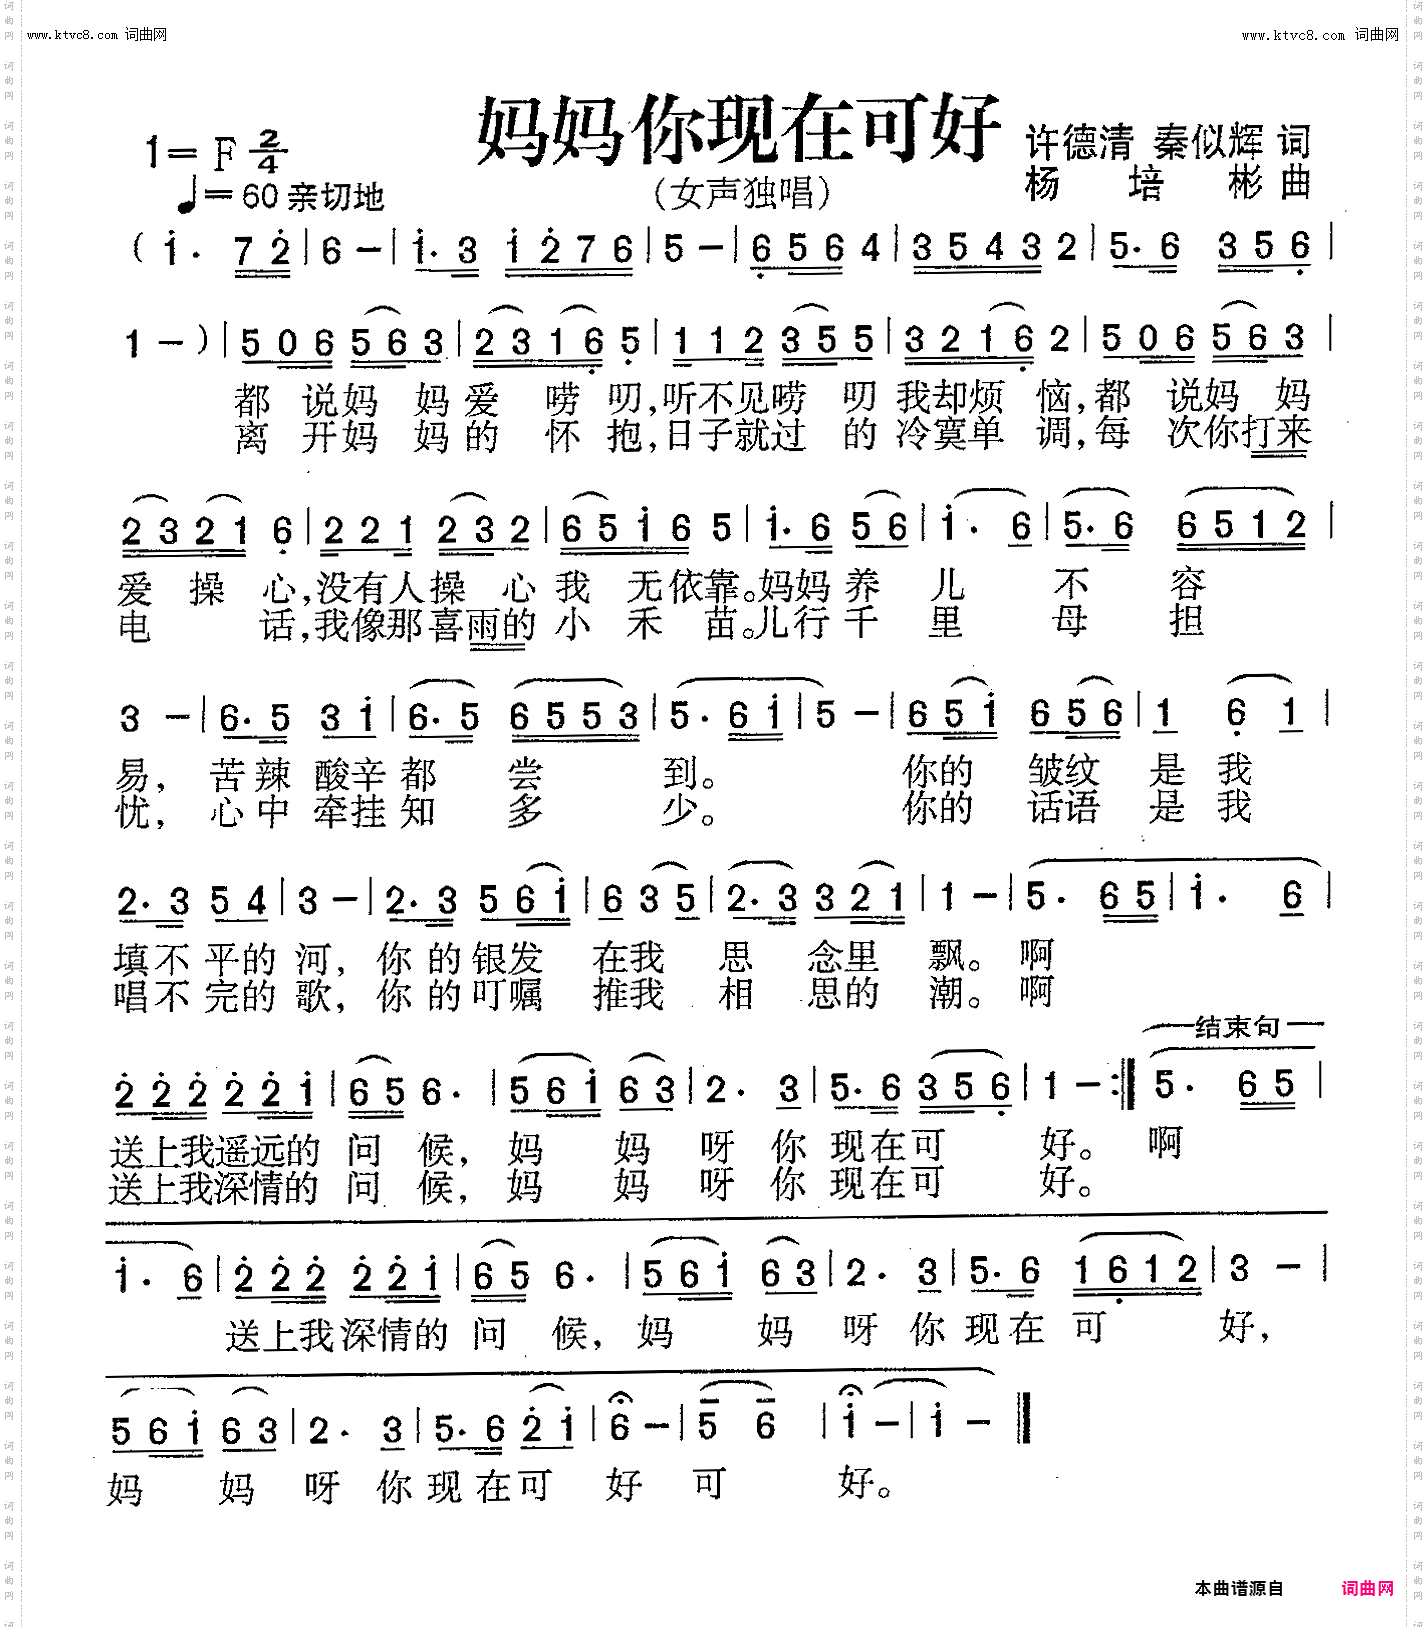 www.ktvc8.com 词曲网
www.ktvc8.com 词曲网
妈妈你现在可好
1=F 2/4
♩=60 亲切地
(女声独唱)
许德清 秦似辉 词
杨培彬 曲
(i. 7 2̇ | 6 － | i. 3 i 2̇ 7 6 | 5 － | 6̣ 5 6 4 | 3 5 4 3 2 | 5. 6 3 5 6̣ |
1 －) | 5 0 6 5 6 3 | 2 3 1 6̣ 5̣ | 1 1 2 3 5 5 | 3 2 1 6̣ 2 | 5 0 6 5 6 3 |
都 说妈 妈 爱 唠 叨,听不见唠 叨 我却烦 恼,都 说妈 妈
离 开妈 妈 的 怀 抱,日子就过 的 冷寞单 调,每 次你打来
2 3 2 1 6̣ | 2 2 1 2 3 2 | 6 5 i 6 5 | i. 6 5 6 | i. 6 | 5. 6 6 5 1 2 |
爱 操 心,没有人操 心 我 无依靠。妈妈 养 儿 不 容
电 话,我像那喜雨的 小 禾 苗。儿行 千 里 母 担
3 － | 6. 5 3 i | 6. 5 6 5 5 3 | 5. 6 i | 5 － | 6 5 i 6 5 6 | 1 6̣ 1 |
易, 苦辣 酸辛 都 尝 到。 你的 皱纹 是 我
忧, 心中 牵挂 知 多 少。 你的 话语 是 我
2. 3 5 4 | 3 － | 2. 3 5 6 i | 6 3 5 | 2. 3 3 2 1 | 1 － | 5. 6 5 | i. 6 |
填不 平的 河, 你 的 银发 在我 思 念里 飘。 啊
唱不 完的 歌, 你 的 叮嘱 推我 相 思的 潮。 啊
结束句
2̇ 2̇ 2̇ 2̇ 2̇ i | 6 5 6. | 5 6 i 6 3 | 2. 3 | 5. 6 3 5 6̣ | 1 － :‖ 5. 6 5 |
送上我遥远的 问 候, 妈 妈 呀 你 现在可 好。 啊
送上我深情的 问 候, 妈 妈 呀 你 现在可 好。
i. 6 | 2̇ 2̇ 2̇ 2̇ 2̇ i | 6 5 6. | 5 6 i 6 3 | 2. 3 | 5. 6 1 6̣ 1 2 | 3 － |
送上我深情的 问 候, 妈 妈 呀 你 现在 可 好,
5 6 i 6 3 | 2. 3 | 5. 6 2̇ i | 6 － | 5 6 | i － | i － ‖
妈 妈 呀 你 现在可 好 可 好。
本曲谱源自 词曲网